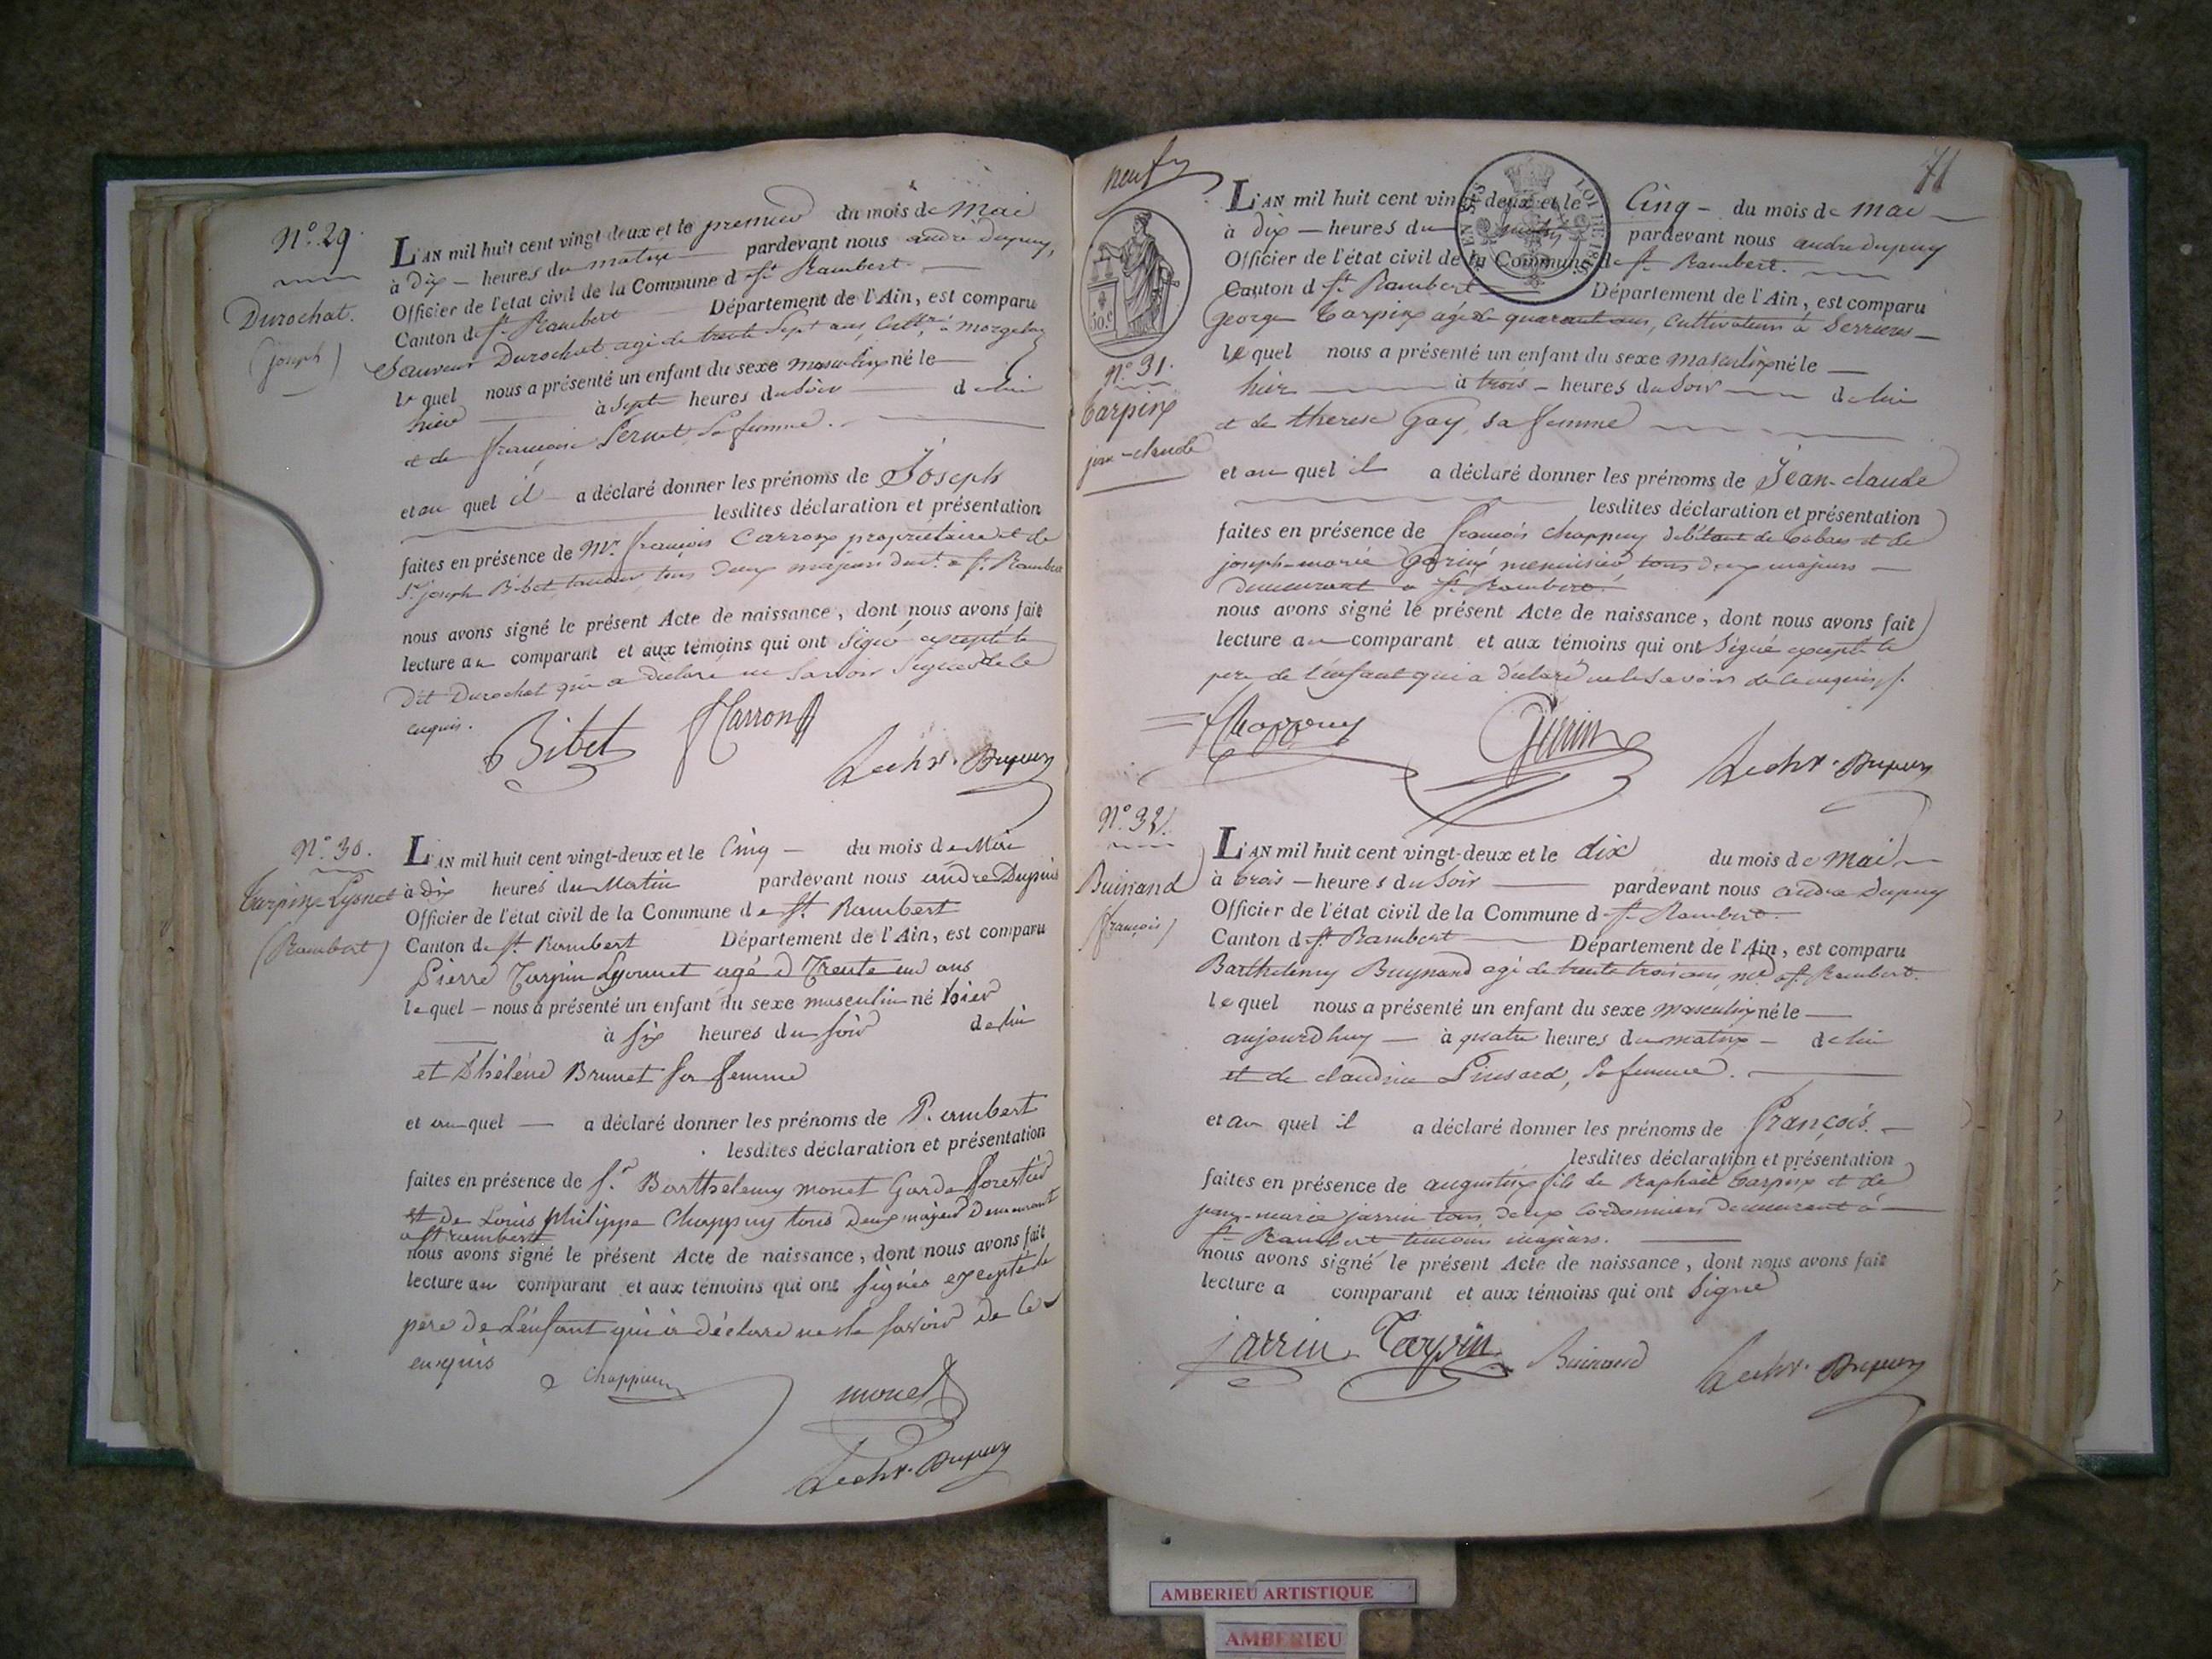 N.° 29.
Durochat.
(joseph)
L'AN mil huit cent vingt-deux et le premier du mois de Mai
à dix — heures du matin — pardevant nous andré dupuy,
Officier de l'etat civil de la Commune d St. Rambert —
Canton de St. Rambert — Département de l'Ain, est comparu
Sauveur Durochat agé de trente sept ans, cultr. à
le quel nous a présenté un enfant du sexe masculin né le —
hier — à Sept heures du Soir — de lui
et de françoise Pernet Sa femme. —
et au quel il a déclaré donner les prénoms de Joseph
lesdites déclaration et présentation
faites en présence de Mr. françois Carron propriétaire et de
Sr. joseph Bibet tous deux majeurs demt. à St. Rambert
nous avons signé le présent Acte de naissance, dont nous avons fait
lecture au comparant et aux témoins qui ont Signé excepté le
Dit Durochat qui a déclaré ne Savoir Signer de ce
enquis.
Bibet Carron
Dupuy
N.° 30.
Tarpin-Lyonet
(Rambert)
L'AN mil huit cent vingt-deux et le Cinq — du mois de Mai
à Dix heures du Matin pardevant nous andre Dupuis
Officier de l'état civil de la Commune de St. Rambert
Canton de St. Rambert Département de l'Ain, est comparu
Pierre Tarpin Lyonnet agé d Trente un ans
le quel — nous a présenté un enfant du sexe masculin né hier
à six heures du soir de lui
et D'hélène Brunet sa femme
et au quel — a déclaré donner les prénoms de Rambert
lesdites déclaration et présentation
faites en présence de Sr. Barthelemy monet Garde forestier
et De Louis philippe Chappuy tous Deux majeurs Demeurant
a St rambert
nous avons signé le présent Acte de naissance, dont nous avons fait
lecture au comparant et aux témoins qui ont signés excepté le
père de L'enfant qui à déclaré ne le savoir de ce
enquis
Chappuy
monet
Dupuy
neuf
71
50.c
N.° 31.
Tarpin
jean-claude
L'AN mil huit cent vingt-deux et le Cinq — du mois de mai —
à dix — heures du matin pardevant nous andre dupuy
Officier de l'état civil de la Commune de St. Rambert.
Canton d St. Rambert — Département de l'Ain, est comparu
George Tarpin agé de quarante ans, cultivateur à Serrieres —
le quel nous a présenté un enfant du sexe masculin né le —
hier — à trois — heures du Soir — de lui
et de therese Gay, sa femme —
et au quel il a déclaré donner les prénoms de Jean-claude
lesdites déclaration et présentation
faites en présence de françois chappuy débitant de tabacs et de
joseph-marie Gérin menuisier tous deux majeurs —
demeurant a St. Rambert.
nous avons signé le présent Acte de naissance, dont nous avons fait
lecture au — comparant et aux témoins qui ont Signé excepté le
pere de l'enfant qui a déclaré ne le Savoir de ce enquis.
Chappuy Gerin Dupuy
N.° 32.
Buisand
(françois)
L'AN mil huit cent vingt-deux et le dix du mois de mai —
à trois — heures du Soir — pardevant nous andre Dupuy
Officier de l'état civil de la Commune d St. Rambert —
Canton d St. Rambert — Département de l'Ain, est comparu
Barthelemy Buynand agé de trente trois ans, à St. Rambert.
le quel nous a présenté un enfant du sexe masculin né le —
aujourdhuy — à quatre heures du matin — de lui
et de claudine Pinsard, Sa femme. —
et au quel il a déclaré donner les prénoms de François. —
lesdites déclaration et présentation
faites en présence de augustin fils de Raphaël Tarpin et de
jean-marie jarrin tous deux Cordonniers demeurant à —
St. Rambert témoins majeurs. —
nous avons signé le présent Acte de naissance, dont nous avons fait
lecture a comparant et aux témoins qui ont Signé
jarrin Tarpin Buinand Dupuy
AMBERIEU ARTISTIQUE
AMBERIEU